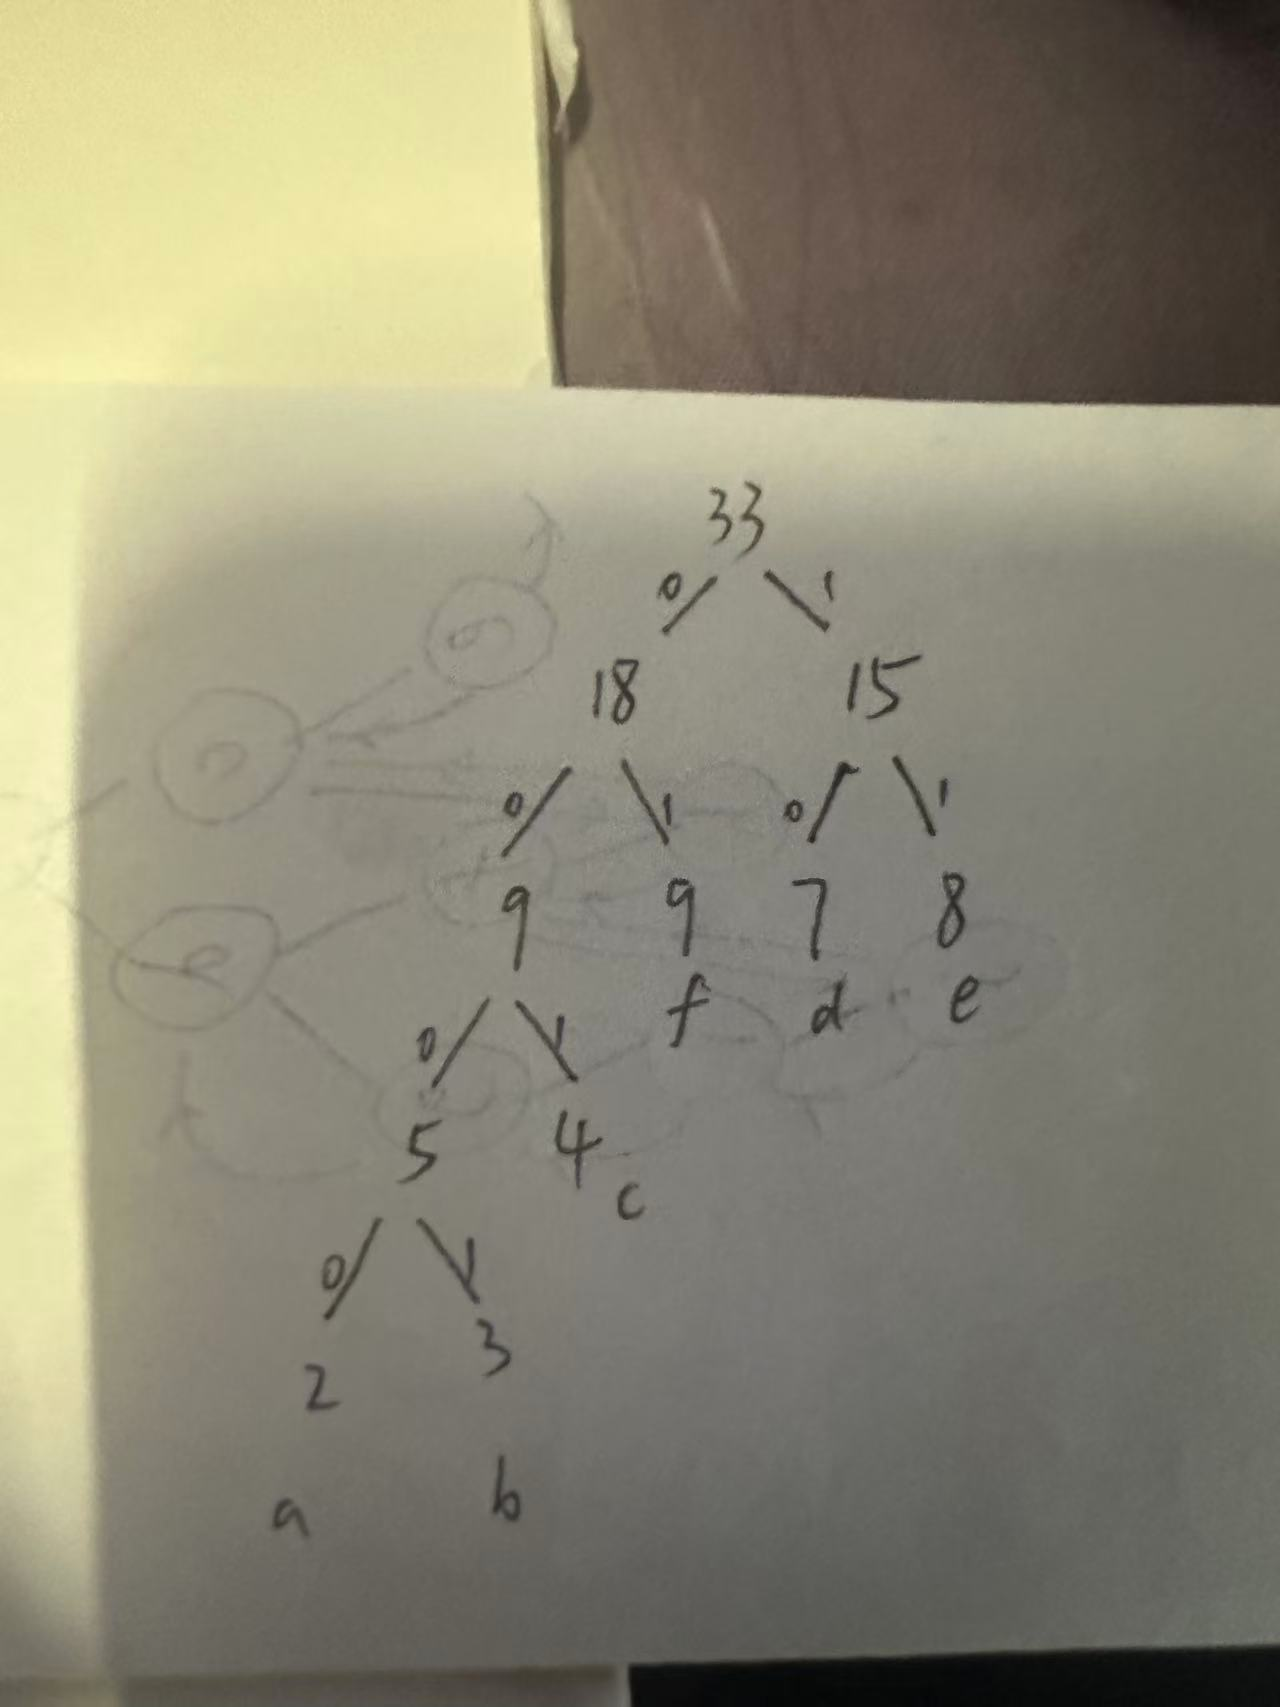 33
0 1
18 15
0 1 0 1
9 9 7 8
f d e
0 1
5 4
c
0 1
2 3
a b